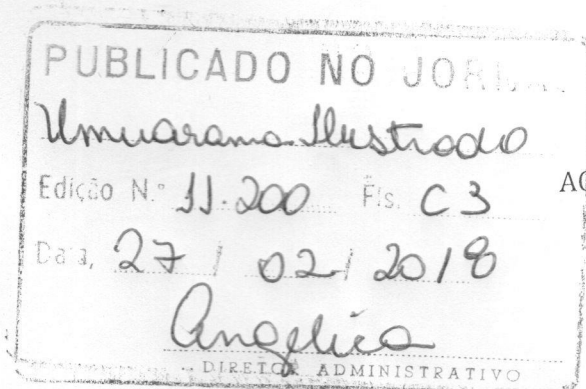 PUBLICADO NO JORNAL
Umuarama Ilustrado
Edição N.º 11.200 Fls. C3
Data, 27 / 02 / 2018
Angélica
DIRETOR ADMINISTRATIVO